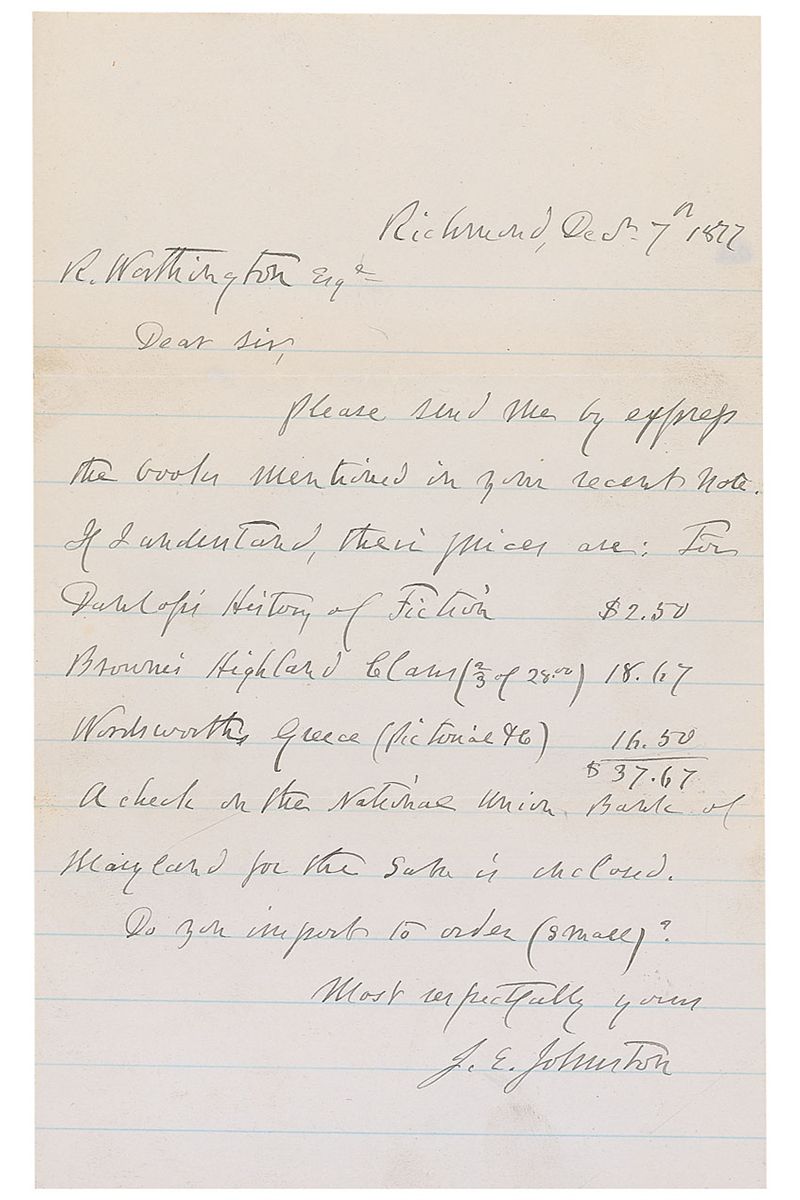 Richmond, Decr 7th 1877
R. Worthington Esqr
Dear Sir,
Please send me by express
the books mentioned in your recent note.
If I understand, their prices are: For
Dunlop's History of Fiction $2.50
Browne's Highland Clans (2/3 of 28.00) 18.67
Wordsworth's Greece (pictorial &c) 16.50
$37.67
A check on the National Union Bank of
Maryland for the sum is enclosed.
Do you import to order (small)?
Most respectfully yours
J. E. Johnston